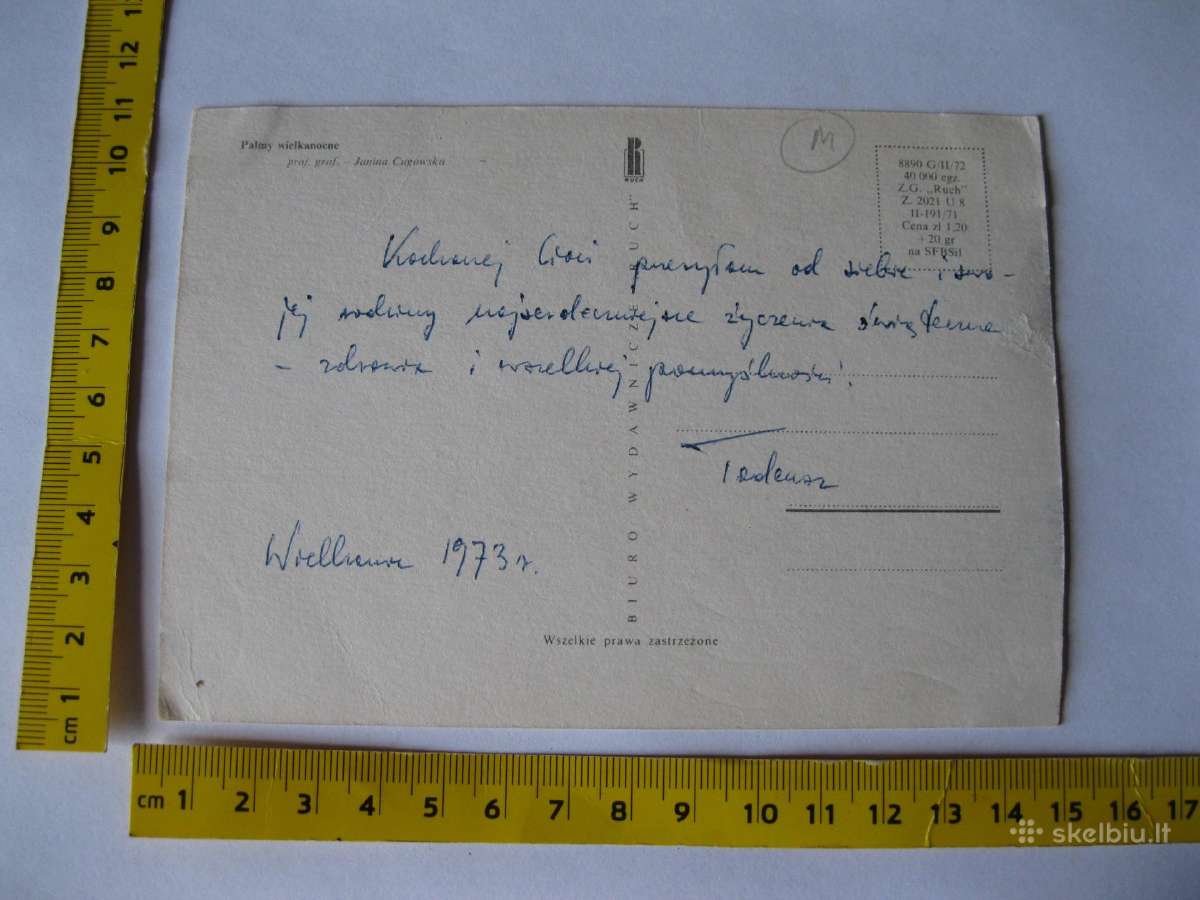 Palmy wielkanocne
proj. graf. - Janina Cugowska
RUCH
M
8890 G/II/72
40 000 egz.
Z.G. „Ruch"
Z. 2021 U 8
II-191/71
Cena zł 1,20
+ 20 gr
na SFBSiI
Kochanej Cioci przesyłam od siebie i swo-
jej rodziny najserdeczniejsze życzenia świąteczne
- zdrowia i wszelkiej pomyślności!
Tadeusz
Wielkanoc 1973 r.
BIURO WYDAWNICZE „RUCH"
Wszelkie prawa zastrzeżone
12
11
10
9
8
7
6
5
4
3
2
1
cm
cm 1 2 3 4 5 6 7 8 9 10 11 12 13 14 15 16 17
skelbiu.lt